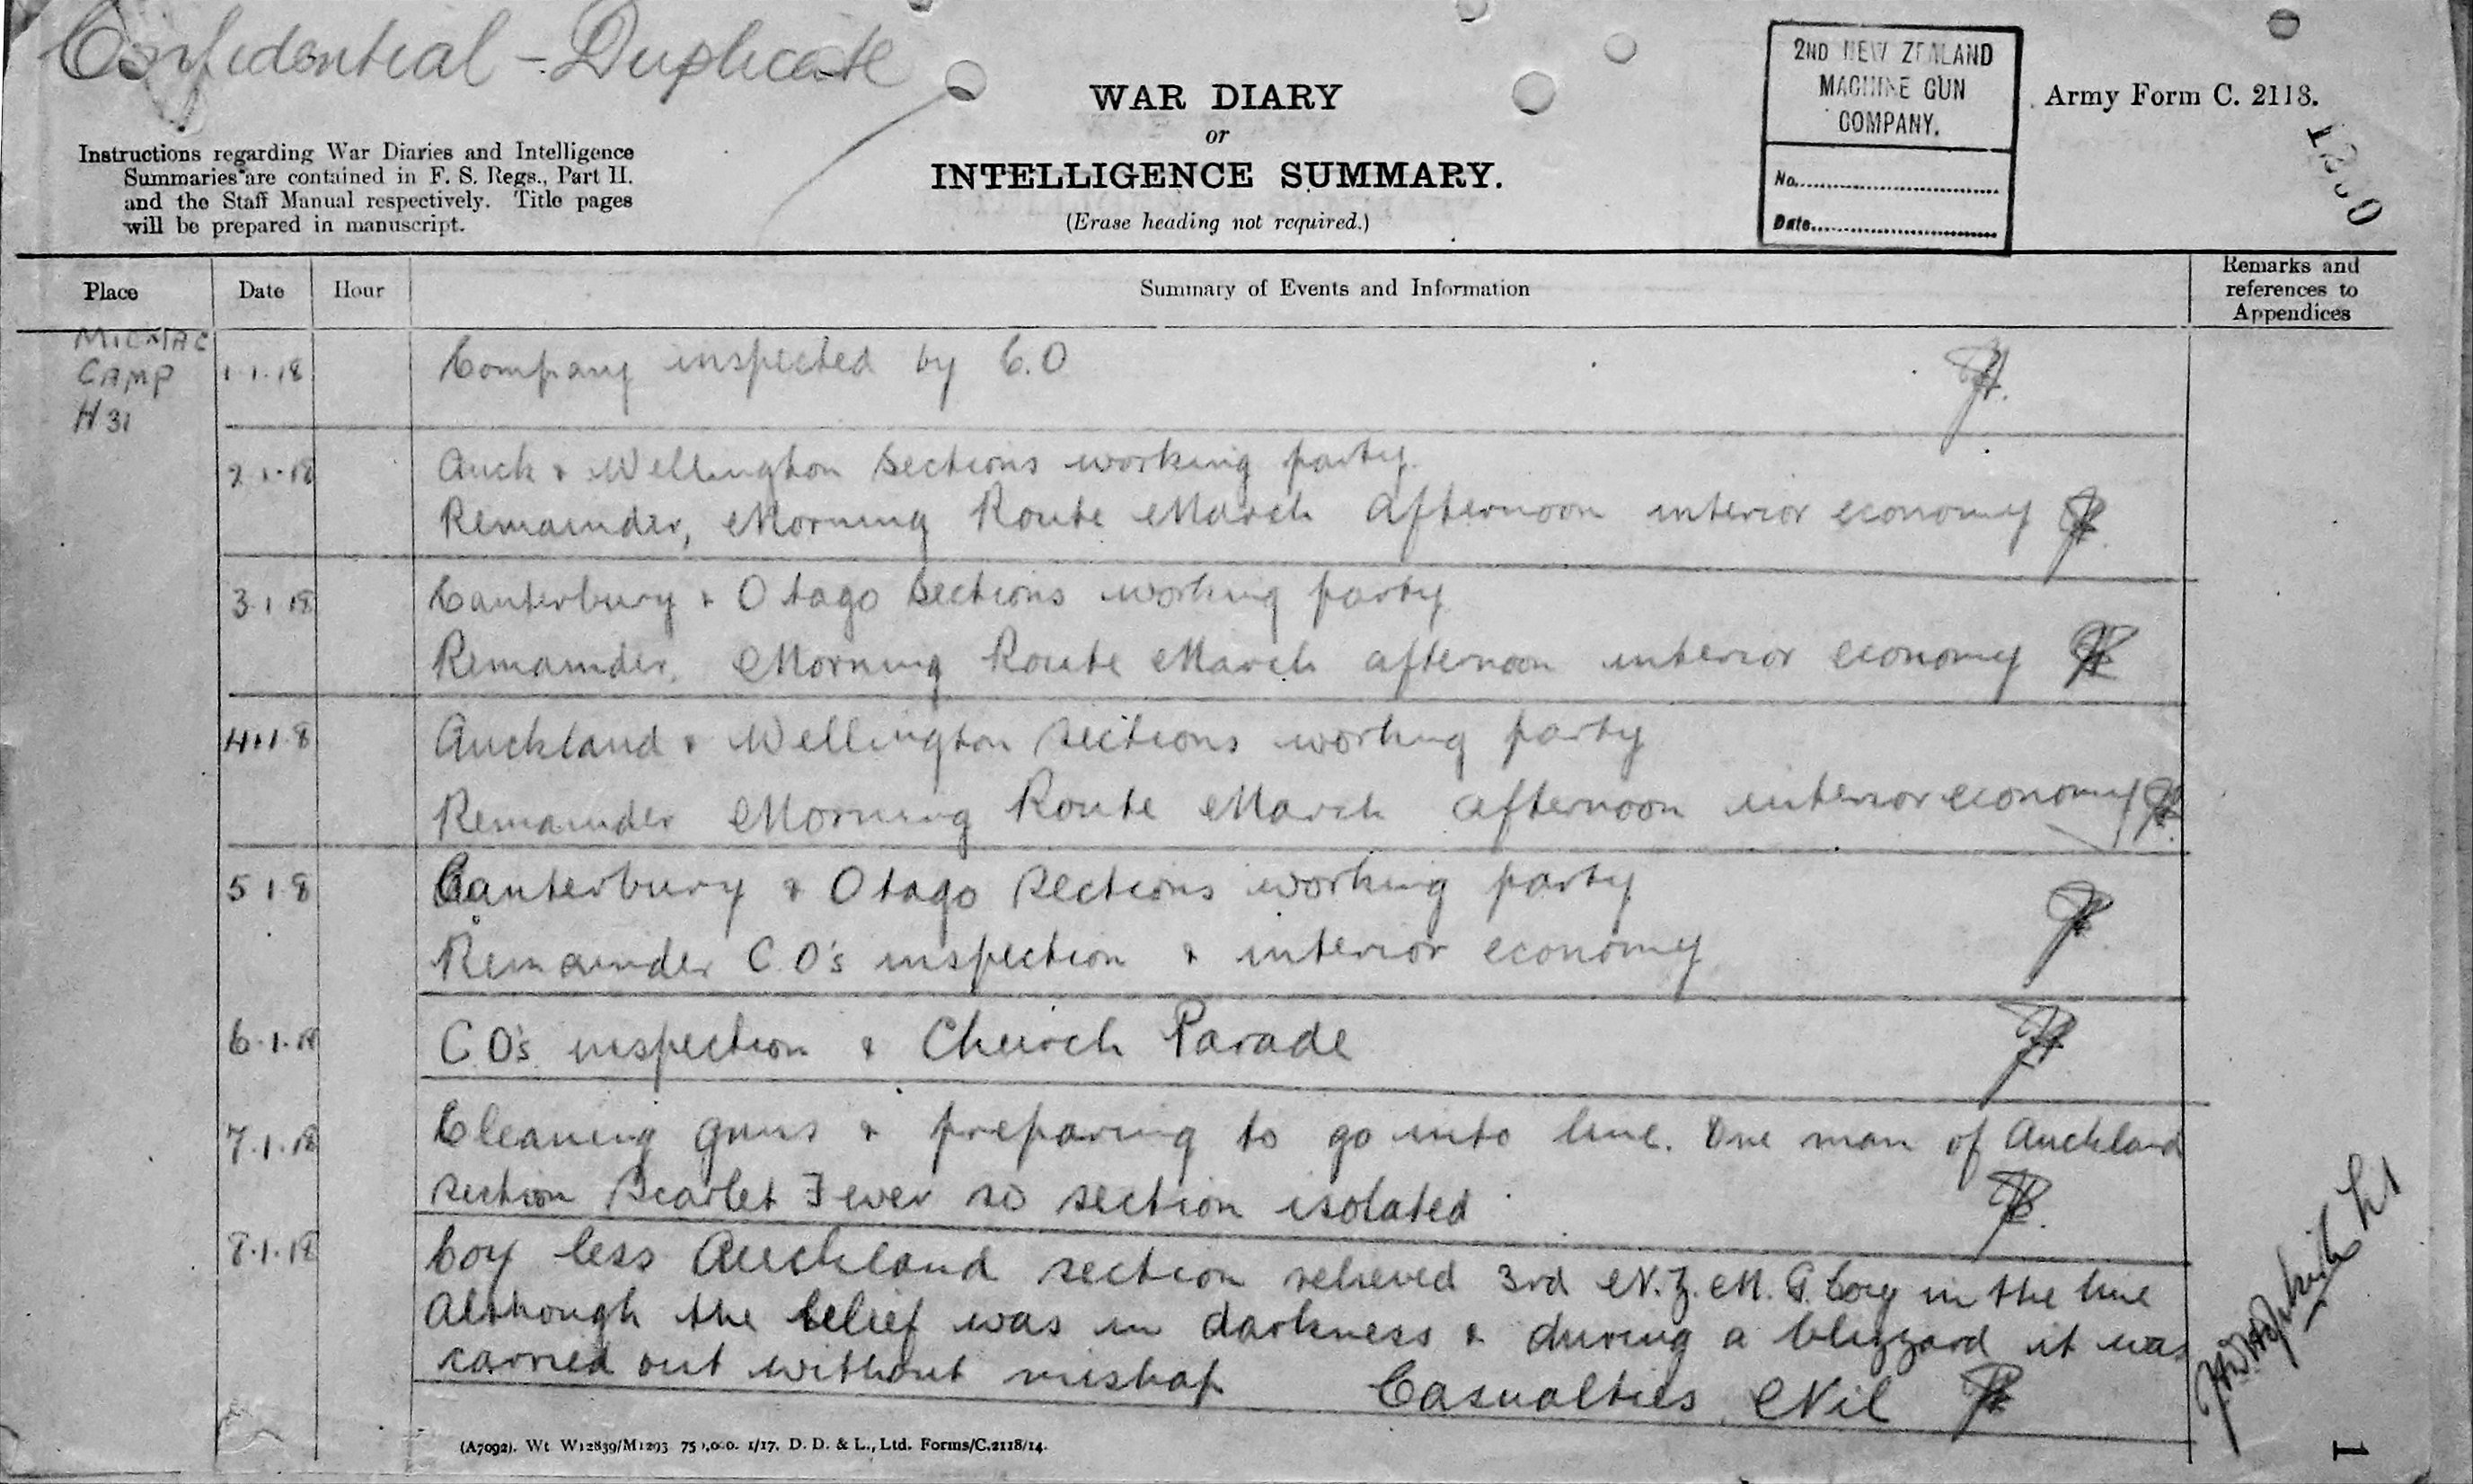 Confidential - Duplicate
Instructions regarding War Diaries and Intelligence
Summaries are contained in F. S. Regs., Part II.
and the Staff Manual respectively. Title pages
will be prepared in manuscript.
WAR DIARY
or
INTELLIGENCE SUMMARY.
(Erase heading not required.)
2ND NEW ZEALAND
MACHINE GUN
COMPANY.
No.
Date
Army Form C. 2118.
Place Date Hour Summary of Events and Information Remarks and
references to
Appendices
MICMAC
CAMP 1.1.18 Company inspected by C.O
H 31
2.1.18 Auck & Wellington sections working party.
Remainder, Morning Route March Afternoon interior economy
3.1.18 Canterbury & Otago sections working party
Remainder. Morning Route March afternoon interior economy
4.1.8 Auckland & Wellington sections working party
Remainder Morning Route March afternoon interior economy
5 1.8 Canterbury & Otago sections working party
Remainder C.O's inspection & interior economy
6.1.18 C.O's inspection & Church Parade
7.1.18 Cleaning guns & preparing to go into line. One man of Auckland
section Scarlet Fever so section isolated
8.1.18 Coy less Auckland section relieved 3rd N.Z.M.G. Coy in the line
Although the relief was in darkness & during a blizzard it was
carried out without mishap Casualties Nil
(A7092). Wt W12839/M1293 750,000. 1/17. D. D. & L., Ltd. Forms/C.2118/14.
1